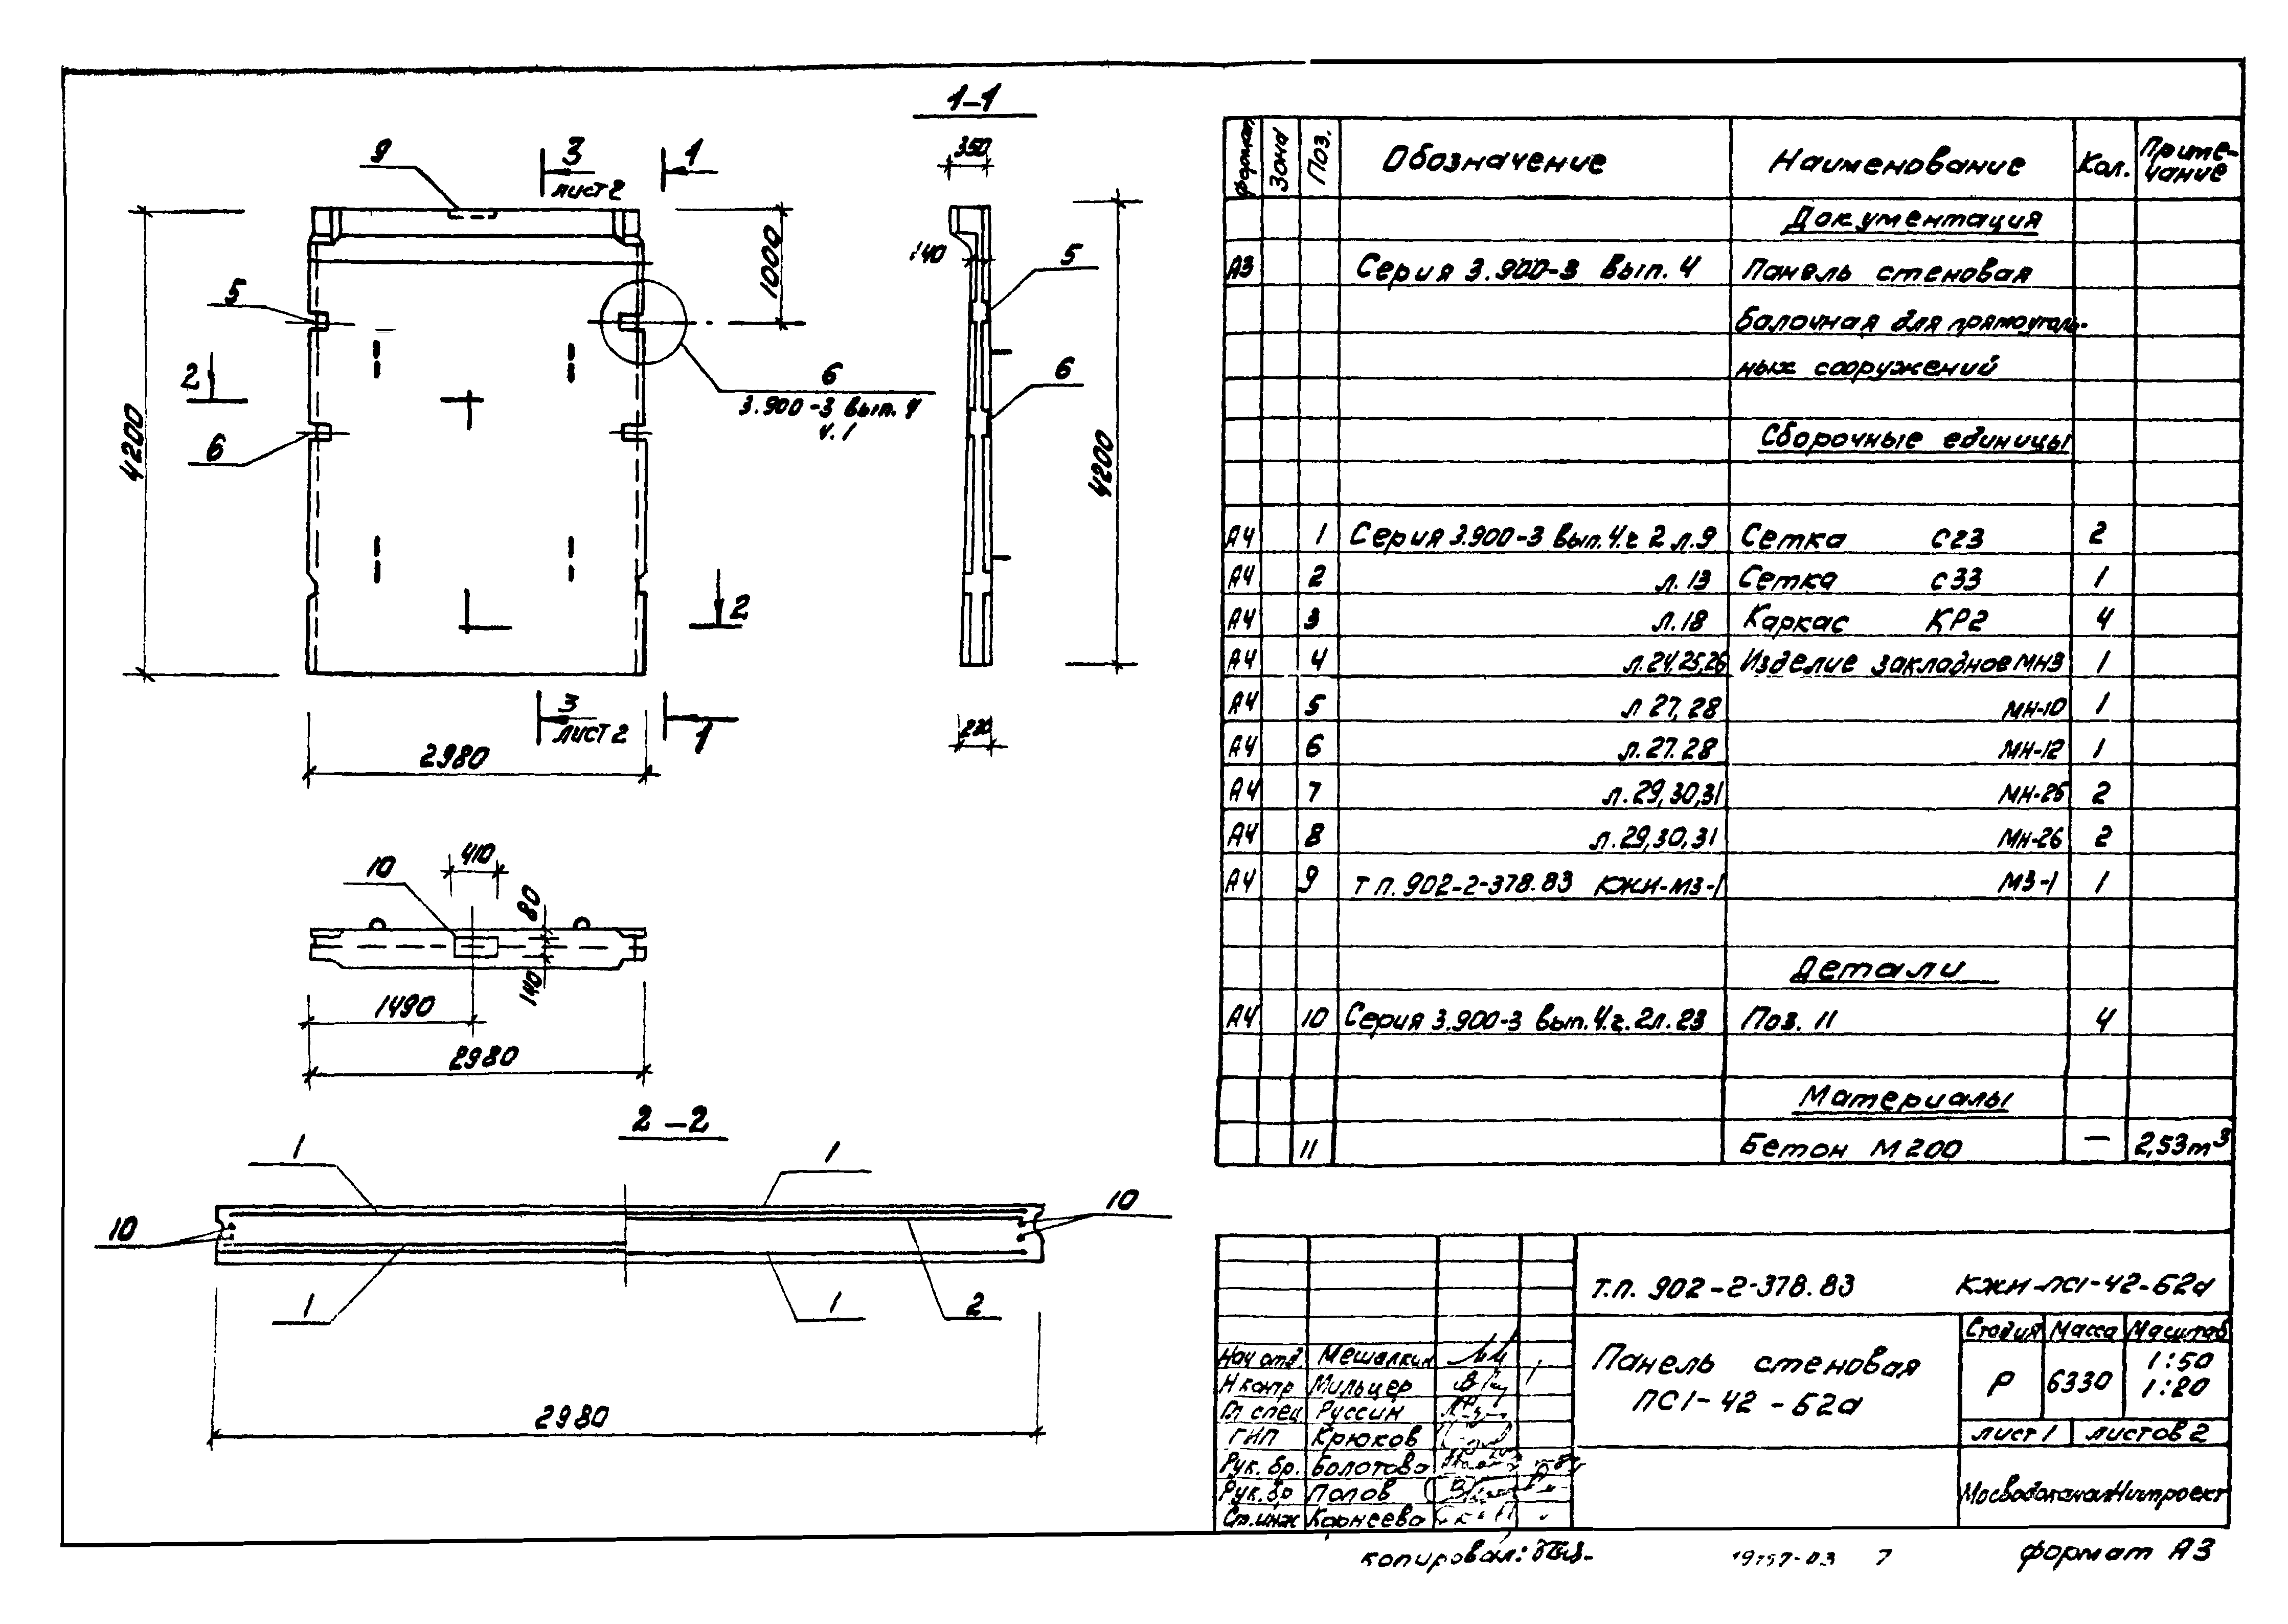 1-1
350
9
3
лист 2
1
4200
1000
140
5
5
6
3.900-3 вып. 4
ч. 1
2
6
6
4200
2
3
лист 2
1
2980
410
10
80
140
1490
2980
2-2
1
1
10
10
1
1
2
2980
Формат Зона Поз. Обозначение Наименование Кол. Приме-
чание
Документация
А3 Серия 3.900-3 вып. 4 Панель стеновая
балочная для прямоуголь-
ных сооружений
Сборочные единицы
А4 1 Серия 3.900-3 вып. 4. ч 2 л.9 Сетка С23 2
А4 2 л. 13 Сетка С33 1
А4 3 л.18 Каркас КР2 4
А4 4 л.24,25,26 Изделие закладное МН3 1
А4 5 л 27,28 МН-10 1
А4 6 л.27.28 МН-12 1
А4 7 л.29,30,31 МН-25 2
А4 8 л.29,30,31 МН-26 2
А4 9 т п. 902-2-378.83 КЖИ-МЗ-1 МЗ-1 1
Детали
А4 10 Серия 3.900-3 вып. 4. ч. 2 л. 23 Поз. 11 4
Материалы
11 Бетон М 200 — 2,53 m³
т.п. 902-2-378.83 КЖИ-ПС1-42-Б2а
Панель стеновая
ПС1-42-Б2а
Стадия Масса Масштаб
Р 6330 1:50
1:20
лист 1 листов 2
МосводоканалНИИпроект
Нач отд Мешалкин
Н контр Мильцер
Гл спец Руссин
ГИП Крюков
Рук. бр. Болотова
Рук. бр Попов
Ст. инж Корнеева
копировал:
7
формат А3